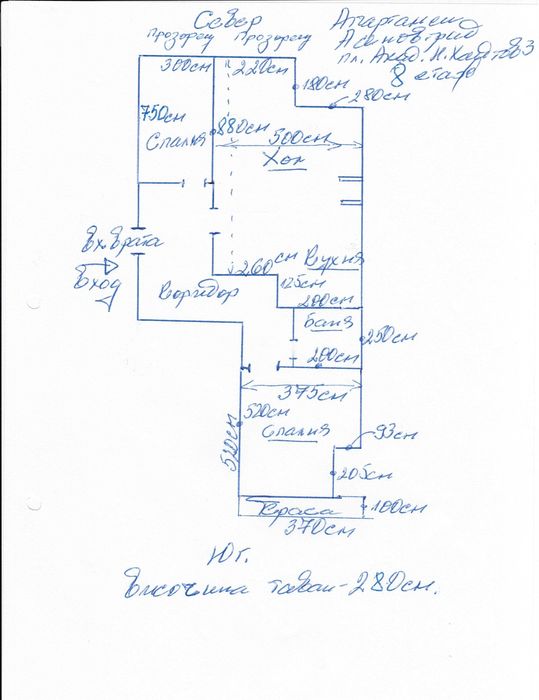 Север
Апартамент
прозорец прозорец
Асеновград
пл. Акад. Н. Хайтов 3
8 етаж
300см 220см
180см
280см
750см
880см
500см
Спалня
Хол
Вх. Врата
Вход
260см
Кухня
125см
Коридор
200см
Баня
250см
200см
375см
520см
520см
Спалня
93см
205см
Тераса
100см
370см
Юг.
Височина таван - 280см.